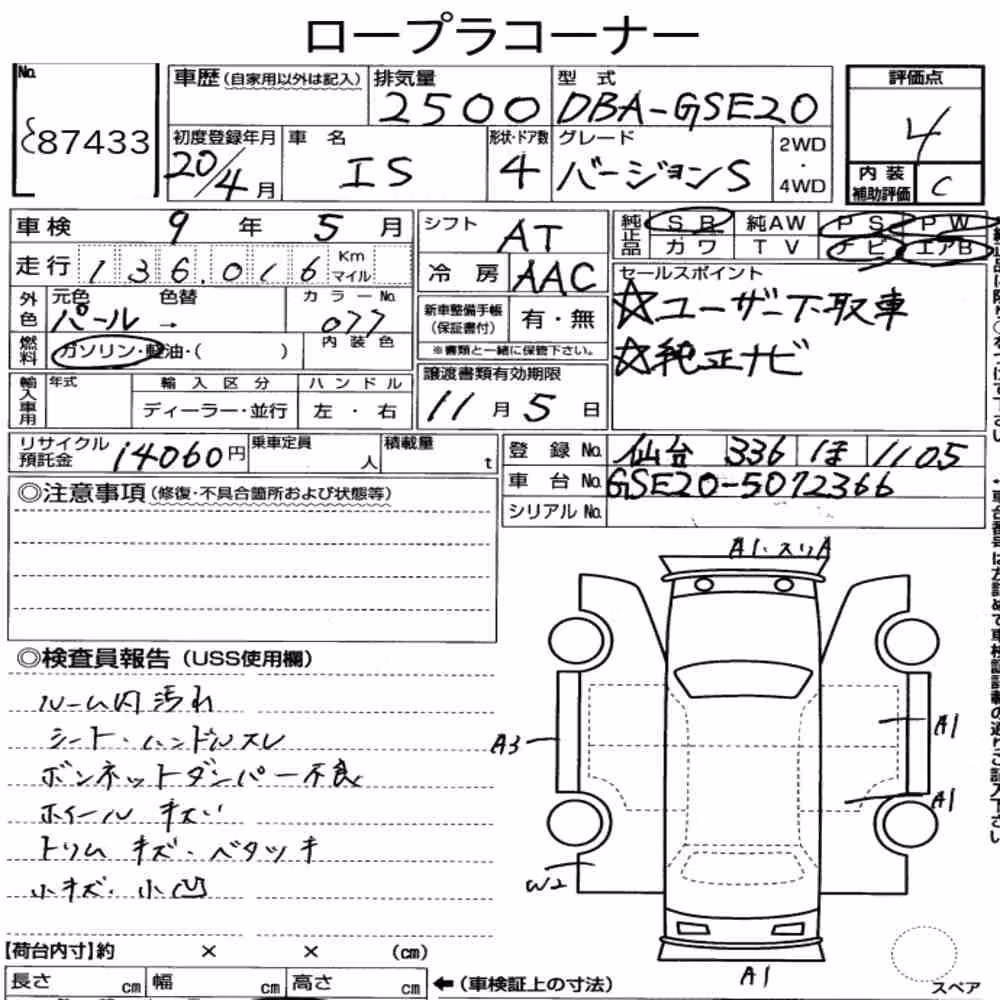 ロープラコーナー
No. 87433
車歴(自家用以外は記入) 排気量 2500 型式 DBA-GSE20
初度登録年月 20/4月 車名 IS 形状・ドア数 4 グレード バージョンS 2WD・4WD
評価点 4
内装補助評価 C
車検 9年 5月
走行 136.016 Km マイル
シフト AT
冷房 AAC
純正品 SR 純AW PS PW
カワ TV ナビ エアB
外色 元色 パール 色替 → カラーNo. 077
燃料 ガソリン・軽油・( ) 内装色
新車整備手帳(保証書付) 有・無
※書類と一緒に保管下さい。
セールスポイント
☆ユーザー下取車
☆純正ナビ
輸入車用 年式 輸入区分 ハンドル
ディーラー・並行 左・右
譲渡書類有効期限
11月5日
リサイクル預託金 14060円 乗車定員 人 積載量 t
登録No. 仙台 336 ほ 1105
車台No. GSE20-5072366
シリアルNo.
◎注意事項(修復・不具合箇所および状態等)
◎検査員報告(USS使用欄)
ルーム内汚れ
シート・ハンドルスレ
ボンネットダンパー不良
ホイールキズ
トリムキズ・ベタツキ
小キズ・小凹
A1・スリA
A3
A1
A1
W2
A1
スペア
【荷台内寸】約 × × (cm)
長さ cm 幅 cm 高さ cm ←(車検証上の寸法)